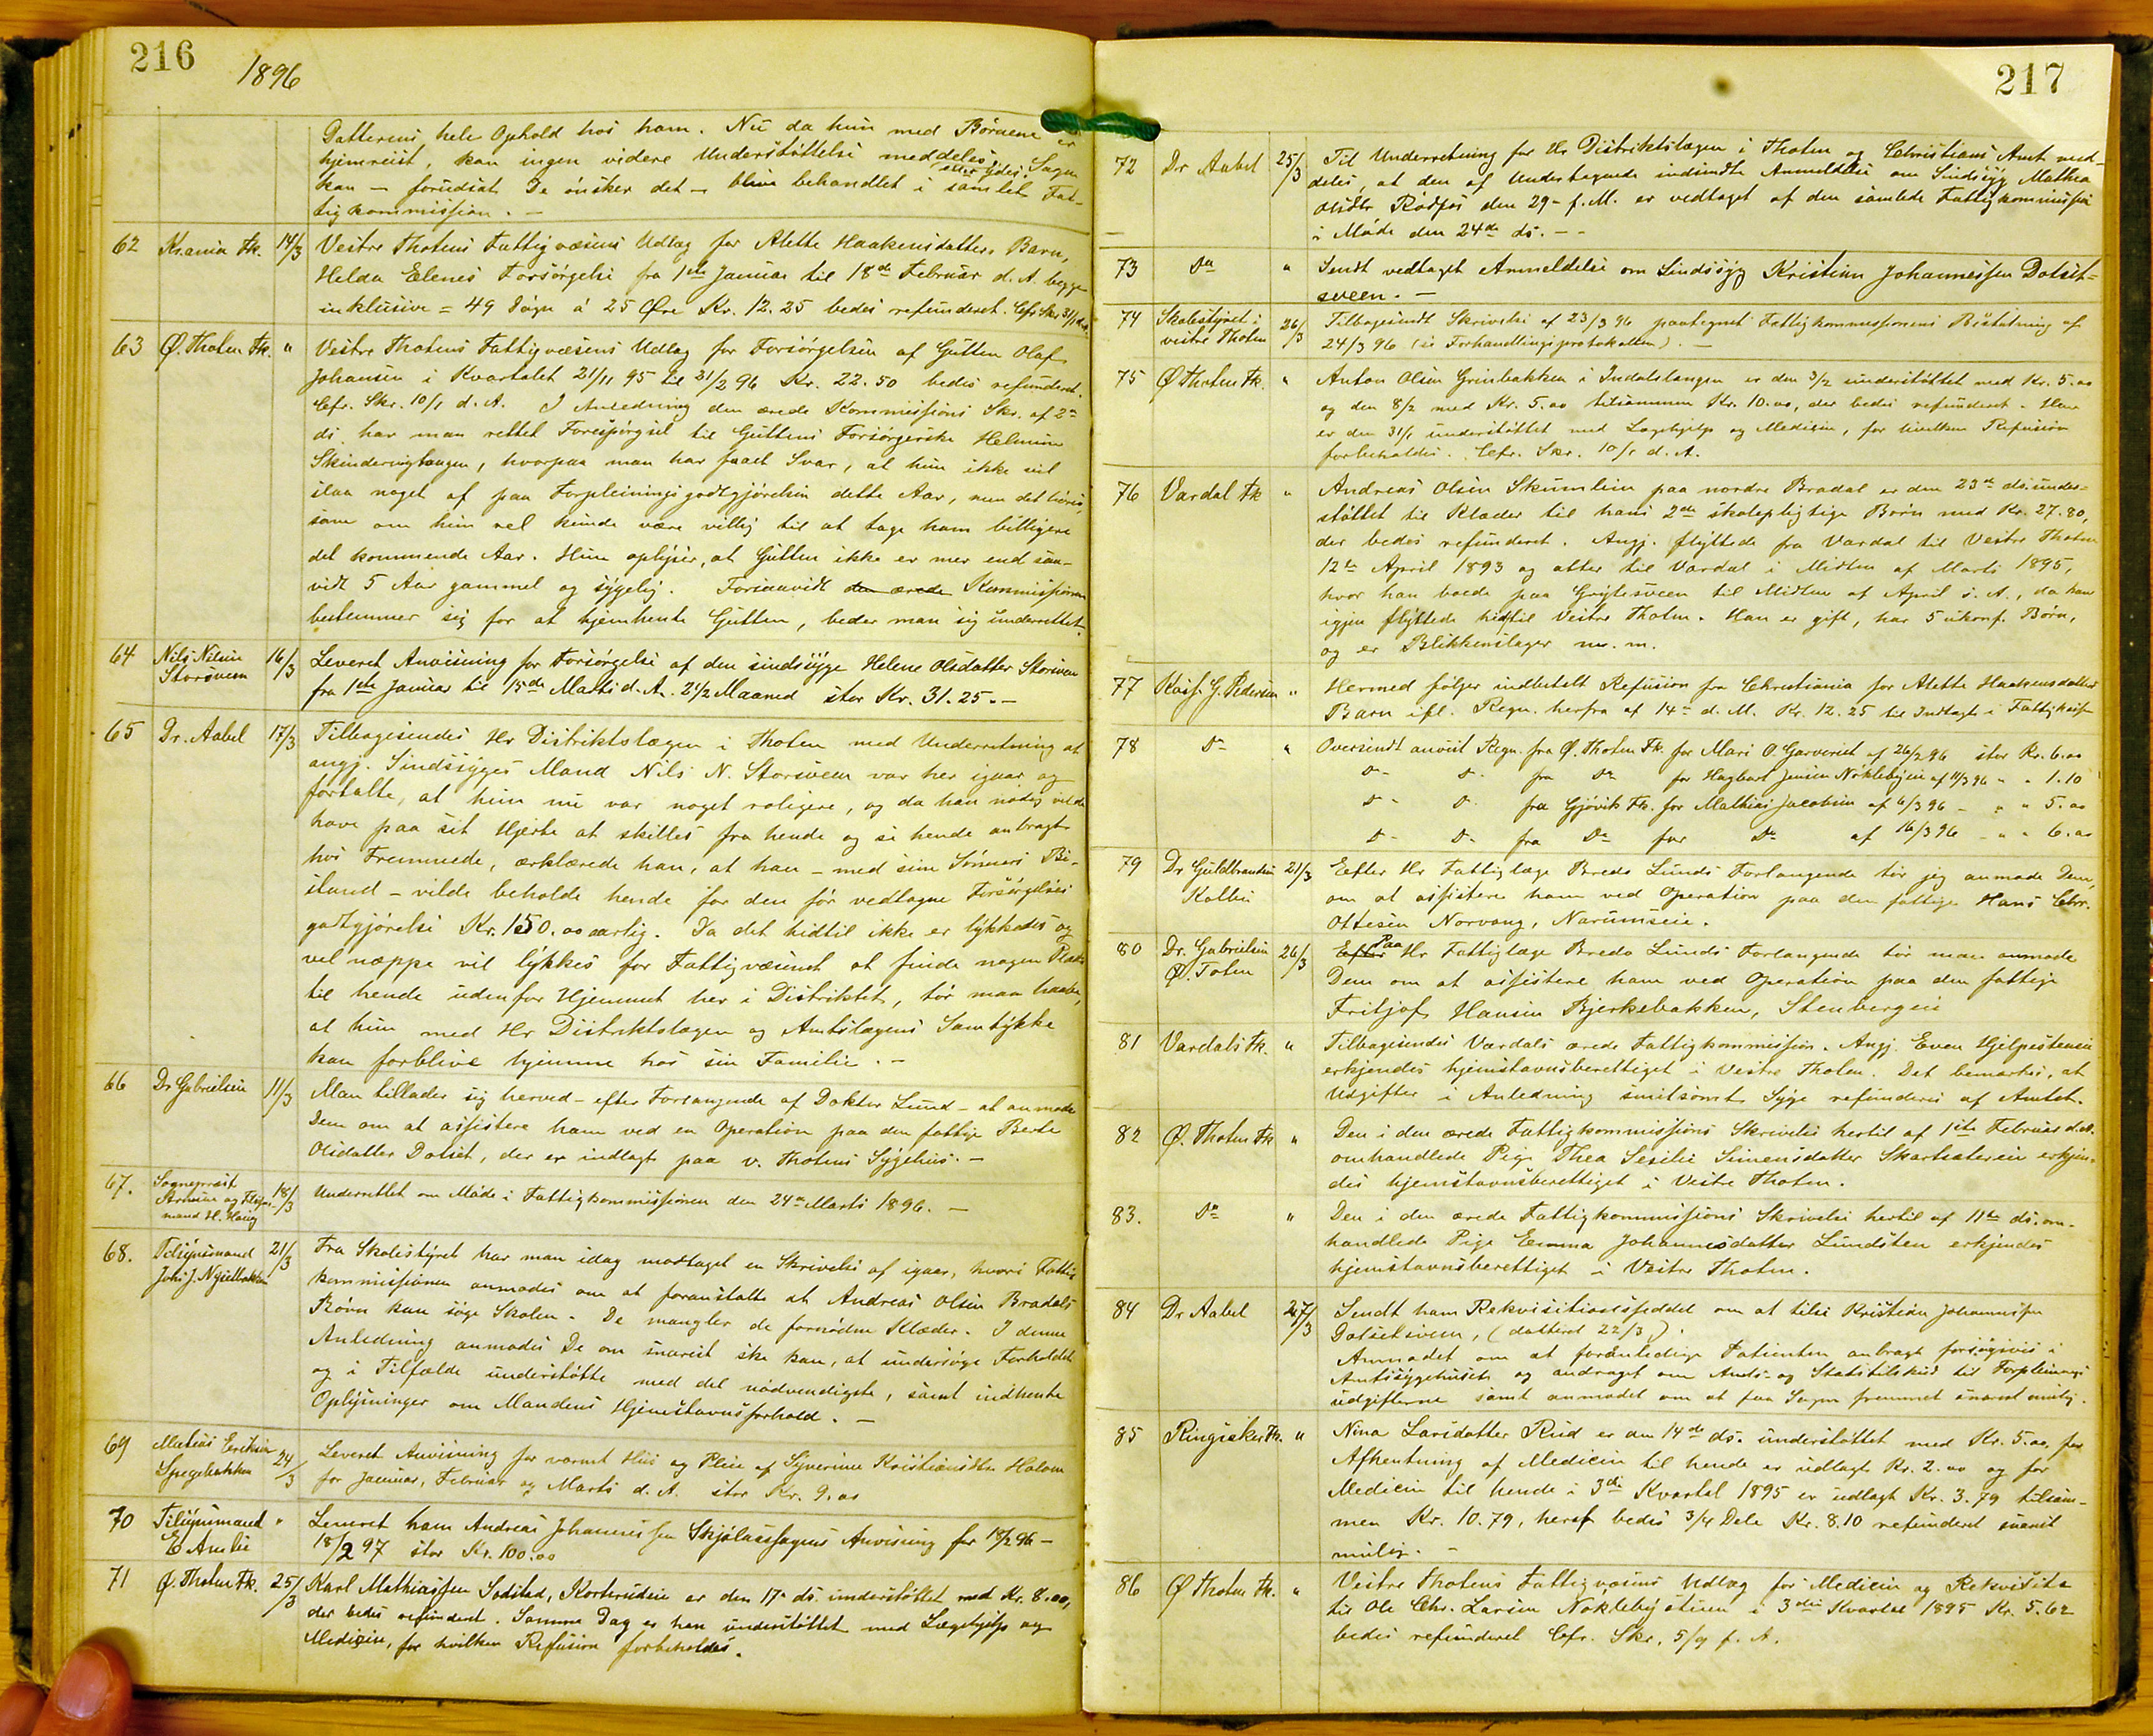 216
1896
Datterens hele Ophold hos ham. Nu da hun med Børnene er
hjemreist, kan ingen videre Understøttelse meddeles. Sagen
kan – forudsat De ønsker det – blive behandlet i samlet Fat-
tigkommission. –
62 Kr.ania Fk. 14/3 Vestre Thotens Fattigvæsens Udlæg for Alette Haakensdatters Barn,
Helda Elenes Forsørgelse fra 1ste Januar til 18de Februar d. A. begge
inklusive = 49 Døgn à 25 Øre Kr. 12.25 bedes refunderet. Cfr. Skr. 31/1 d.A.
63 Ø. Thoten Fk. " Vestre Thotens Fattigvæsens Udlæg for Forsørgelsen af Gutten Olaf
Johansen i Kvartalet 21/11 95 til 21/2 96 Kr. 22.50 bedes refunderet.
Cfr. Skr. 10/1 d. A. I Anledning den ærede Kommissions Skr. af 2n
ds. har man rettet Forespørgsel til Guttens Forsørgerske Helmine
Skindervigtangen, hvorpaa man har faaet Svar, at hun ikke vil
slaa noget af paa Forpleiningsgodtgjørelsen dette Aar, men det høres
som om hun vel kunde være villig til at tage ham billigere
det kommende Aar. Hun oplyser, at Gutten ikke er mer end saa-
vidt 5 Aar gammel og sygelig. Forsaavidt den ærede Kommissionen
bestemmer sig for at hjemhente Gutten, beder man sig underrettet.
64 Nils Nilsen 16/3 Leveret Anvisning for Forsørgelse af den sindssyge Helene Olsdatter Storsveen
Storsveen fra 1ste Januar til 15de Marts d. A. 2 1/2 Maaned stor Kr. 31.25. –
65 Dr. Aabel 17/3 Tilbagesendes Hr Distriktslægen i Thoten med Underretning at
angj. Sindssyges Mand Nils N. Storsveen var her igaar og
fortalte, at hun nu var noget roligere, og da han nødig vilde
have paa sit Hjerte at skilles fra hende og se hende anbragt
hos Fremmede, erklærede han, at han – med sine Sønners Bi-
stand – vilde beholde hende for den før vedtagne Forsørgelses
godtgjørelse Kr. 150.00 aarlig. Da det hidtil ikke er lykkedes og
vel næppe vil lykkes for Fattigvæsenet at finde nogen Plads
til hende udenfor Hjemmet her i Distriktet, tør man haabe,
at hun med Hr Distriktslægen og Amtslægens Samtykke
kan forblive hjemme hos sin Familie. –
66 Dr Gabrielsen 11/3 Man tillader sig herved – efter Forlangende af Doktor Lund – at anmode
Dem om at assistere ham ved en Operation paa den fattige Berte
Olsdatter Dotset, der er indlagt paa v. Thotens Sygehus. –
67. Sogneprest
og Tilsyns- 18/3 Underrettet om Møde i Fattigkommissionen den 24de Marts 1896. –
mand H. Haug
68. Tilsynsmand 21/3 Fra Skolestyret har man idag modtaget en Skrivelse af igaar, hvori Fattig
kommissionen anmodes om at foranstalte at Andreas Olsen Bradals
Børn kan søge Skolen. De mangler de fornødne Klæder. I denne
Anledning anmodes De om snarest ske kan, at undersøge Forholdet
og i Tilfælde understøtte med det nødvendigste, samt indhente
Oplysninger om Mandens Hjemstavnsforhold. –
69 Mateas Eriksen 24/3 Leveret Anvisning for varmt Hus og Pleie af Syverine Kristiansdtr Holom
Spegebakken for Januar, Februar og Marts d. A. stor Kr. 9.00
70 Tilsynsmand " Leveret ham Andreas Johannessen Anvisning for 18/2 96 –
18/2 97 stor Kr. 100.00
71 Ø. Thoten Fk. 25/3 Karl Mathiassen Korterudeie er den 17n ds. understøttet med Kr. 8.00,
der bedes refunderet. Samme Dag er han understøttet med Lægehjelp og
Medicin, for hvilken Refusion forbeholdes.
217
72 Dr Aabel 25/3 Til Underretning for Hr Distriktslægen i Thoten og Christians Amt med-
deles, at den af Undertegnede indsendte Anmeldelse om Sindssyg Mathea
Olsdtr Rødfos den 29- f. M. er vedtaget af den samlede Fattigkommission
i Møde den 24de ds. –
73 Do " Sendt vedtaget Anmeldelse om Sindssyg Kristian Johannessen Dotset-
sveen. –
74 Skolestyret i 26/3 Tilbagesendt Skrivelse af 23/3 96 paategnet Fattigkommissionens Beslutning af
vestre Thoten 24/3 96 (se Forhandlingsprotokollen). –
75 Ø Thoten Fk. " Anton Olsen Grinbakken i Indalslangen er den 3/2 understøttet med Kr. 5.00
og den 8/2 med Kr. 5.00 tilsammen Kr. 10.00, der bedes refunderet. Han
er den 31/1 understøttet med Lægehjelp og Medicin, for hvilken Refusion
forbeholdes. Cfr. Skr. 10/1 d. A.
76 Vardal Fk " Andreas Olsen Skumlien paa nordre Bradal er den 23de ds. under-
støttet til Klæder til hans 2de skolepligtige Børn med Kr. 27.80,
der bedes refunderet. Angj. flyttede fra Vardal til Vestre Thoten
12te April 1893 og atter til Vardal i Midten af Marts 1895,
hvor han boede paa Grytesveen til Midten af April s. A., da han
igjen flyttede hidtil Vestre Thoten. Han er gift, har 5 ukonf. Børn,
og er Blikkenslager m. m.
77 G. Pedersen " Hermed følger indbetalt Refusion fra Christiania for Alette Haakensdatters
Barn ifl. Regn. herfra af 14- d. M. Kr. 12.25 til Indtægt i Fattigkass
78 Do " Oversendt anvist Regn. fra Ø. Thoten Fk. for Mari O. Garveriet af 26/2 96 stor Kr. 6.00
Do Do fra Do for Hagbart Jensen Nøklebyeie af 11/3 96 " " 1.10
Do Do fra Gjøvik Fk. for Mathias Jacobsen af 6/3 96 – " " 5.00
Do Do fra Do for Do af 16/3 96 – " " 6.00
79 Dr Guldbrandsen 21/3 Efter Hr Fattiglæge Breda Lunds Forlangende tør jeg anmode Dem,
Kolbu om at assistere ham ved Operation paa den fattige Hans Chr.
Ottesen Norvang, Narumseie.
80 Dr. Gabrielsen 26/3 Efter Paa Hr Fattiglæge Breda Lunds Forlangende tør man anmode
Ø. Toten Dem om at assistere ham ved Operation paa den fattige
Fritjof Hansen Bjerkebakken, Stenbergeie
81 Vardals Fk. " Tilbagesendes Vardals ærede Fattigkommission. Angj. Even Hjelpestensen
erkjendes hjemstavnsberettiget i Vestre Thoten. Det bemærkes, at
Udgifter i Anledning smitsomt Syge refunderes af Amtet.
82 Ø. Thoten Fk " Den i den ærede Fattigkommissions Skrivelse hertil af 1ste Februar d. A.
omhandlede Pige Thea Sesilie Simensdatter erkjen-
des hjemstavnsberettiget i Vestre Thoten.
83. Do " Den i den ærede Fattigkommissions Skrivelse hertil af 11te ds. om-
handlede Pige Emma Johannesdatter Lundsten erkjendes
hjemstavnsberettiget i Vestre Thoten.
84 Dr Aabel 27/3 Sendt ham Rekvisitionsseddel om at tilse Kristian Johannessen
Dotsetsveen, (datteret 22/3).
Anmodet om at foranledige Patienten anbragt forsøgsvis i
Amtssygehuset og andraget om Amts- og Statstilskud til Forpleinings
udgifterne samt anmodet om at faa Sagen fremmet snarest mulig.
85 Ringsaker Fk. " Nina Larsdatter Rud er den 14de ds. understøttet med Kr. 5.00, for
Afhentning af Medicin til hende er udlagt Kr. 2.00 og for
Medicin til hende i 3die Kvartal 1895 er udlagt Kr. 3.79 tilsam-
men Kr. 10.79, heraf bedes 3/4 Dele Kr. 8.10 refunderet snarest
mulig. –
86 Ø Thoten Fk. " Vestre Thotens Fattigvæsens Udlæg for Medicin og Rekvisita
til Ole Chr. Larsen i 3die Kvartal 1895 Kr. 5.62
bedes refunderet Cfr. Skr. 5/9 f. A.